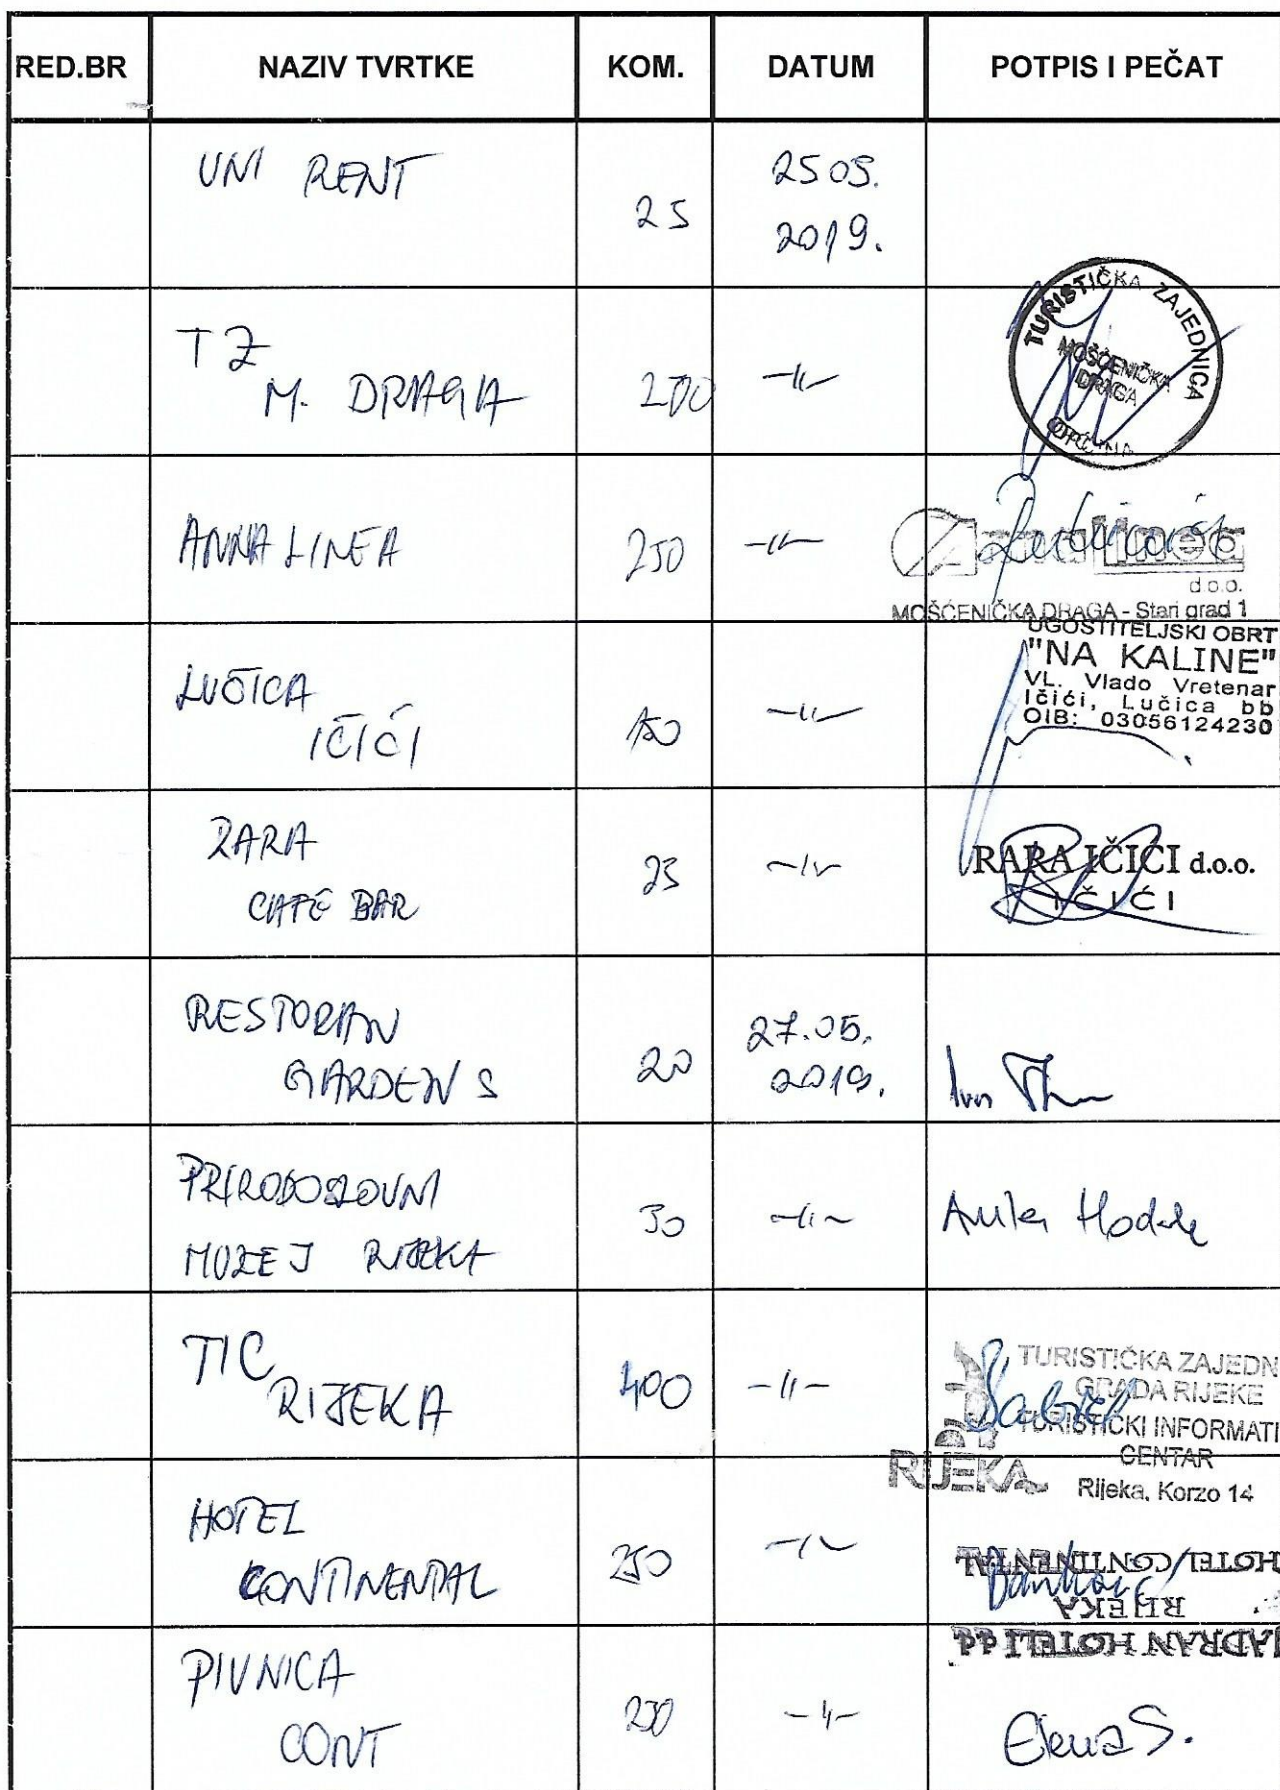 RED.BR NAZIV TVRTKE KOM. DATUM POTPIS I PEČAT
UNI RENT
25
25 05.
2019.
TZ
M. DRAGA
200
-11-
TURISTIČKA ZAJEDNICA
MOŠĆENIČKA
DRAGA
OPĆINA
ANNA LINEA
250
-11-
linea
d.o.o.
MOŠĆENIČKA DRAGA - Stari grad 1
LUČICA
IČIĆI
150
-11-
UGOSTITELJSKI OBRT
"NA KALINE"
VL. Vlado Vretenar
Ičići, Lučica bb
OIB: 03056124230
RARA
CAFÉ BAR
25
-11-
RARA IČIĆI d.o.o.
IČIĆI
RESTORAN
GARDENS
20
27.05.
2019.
PRIRODOSLOVNI
MUZEJ RIJEKA
30
-11-
TIC
RIJEKA
400
-11-
TURISTIČKA ZAJEDN
GRADA RIJEKE
TURISTIČKI INFORMATI
CENTAR
RIJEKA
Rijeka, Korzo 14
HOTEL
CONTINENTAL
250
-11-
HOTEL CONTINENTAL
RIJEKA
JADRAN HOTELI d.d.
PIVNICA
CONT
-11-
Elena S.